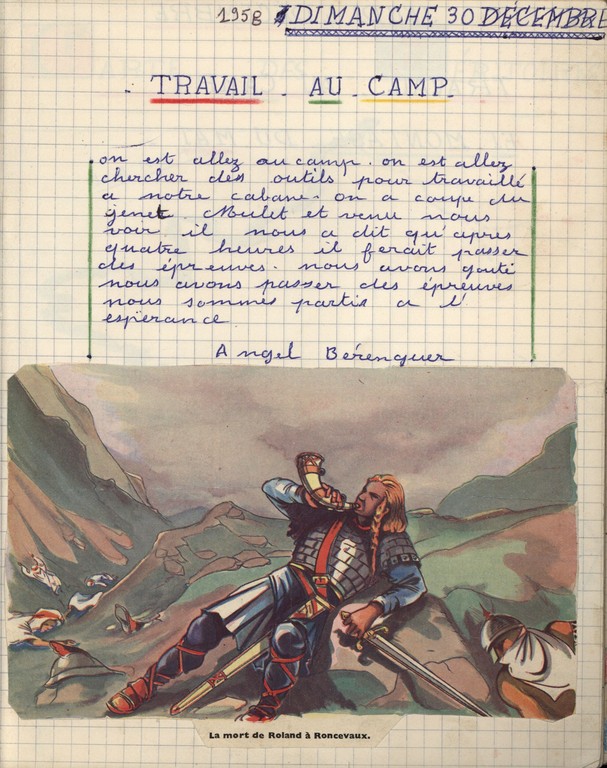 1958 DIMANCHE 30 DÉCEMBRE
. TRAVAIL . AU . CAMP.
on est allez au camp. on est allez
chercher des outils pour travaillé
a notre cabane. on a coupe du
genet. Mulet et venu nous
voir il nous a dit qu'apres
quatre heures il ferait passer
des épreuves. nous avons gouté
nous avons passer des épreuves
nous sommes partis a l'
espérance
Angel Bérenguer
La mort de Roland à Roncevaux.